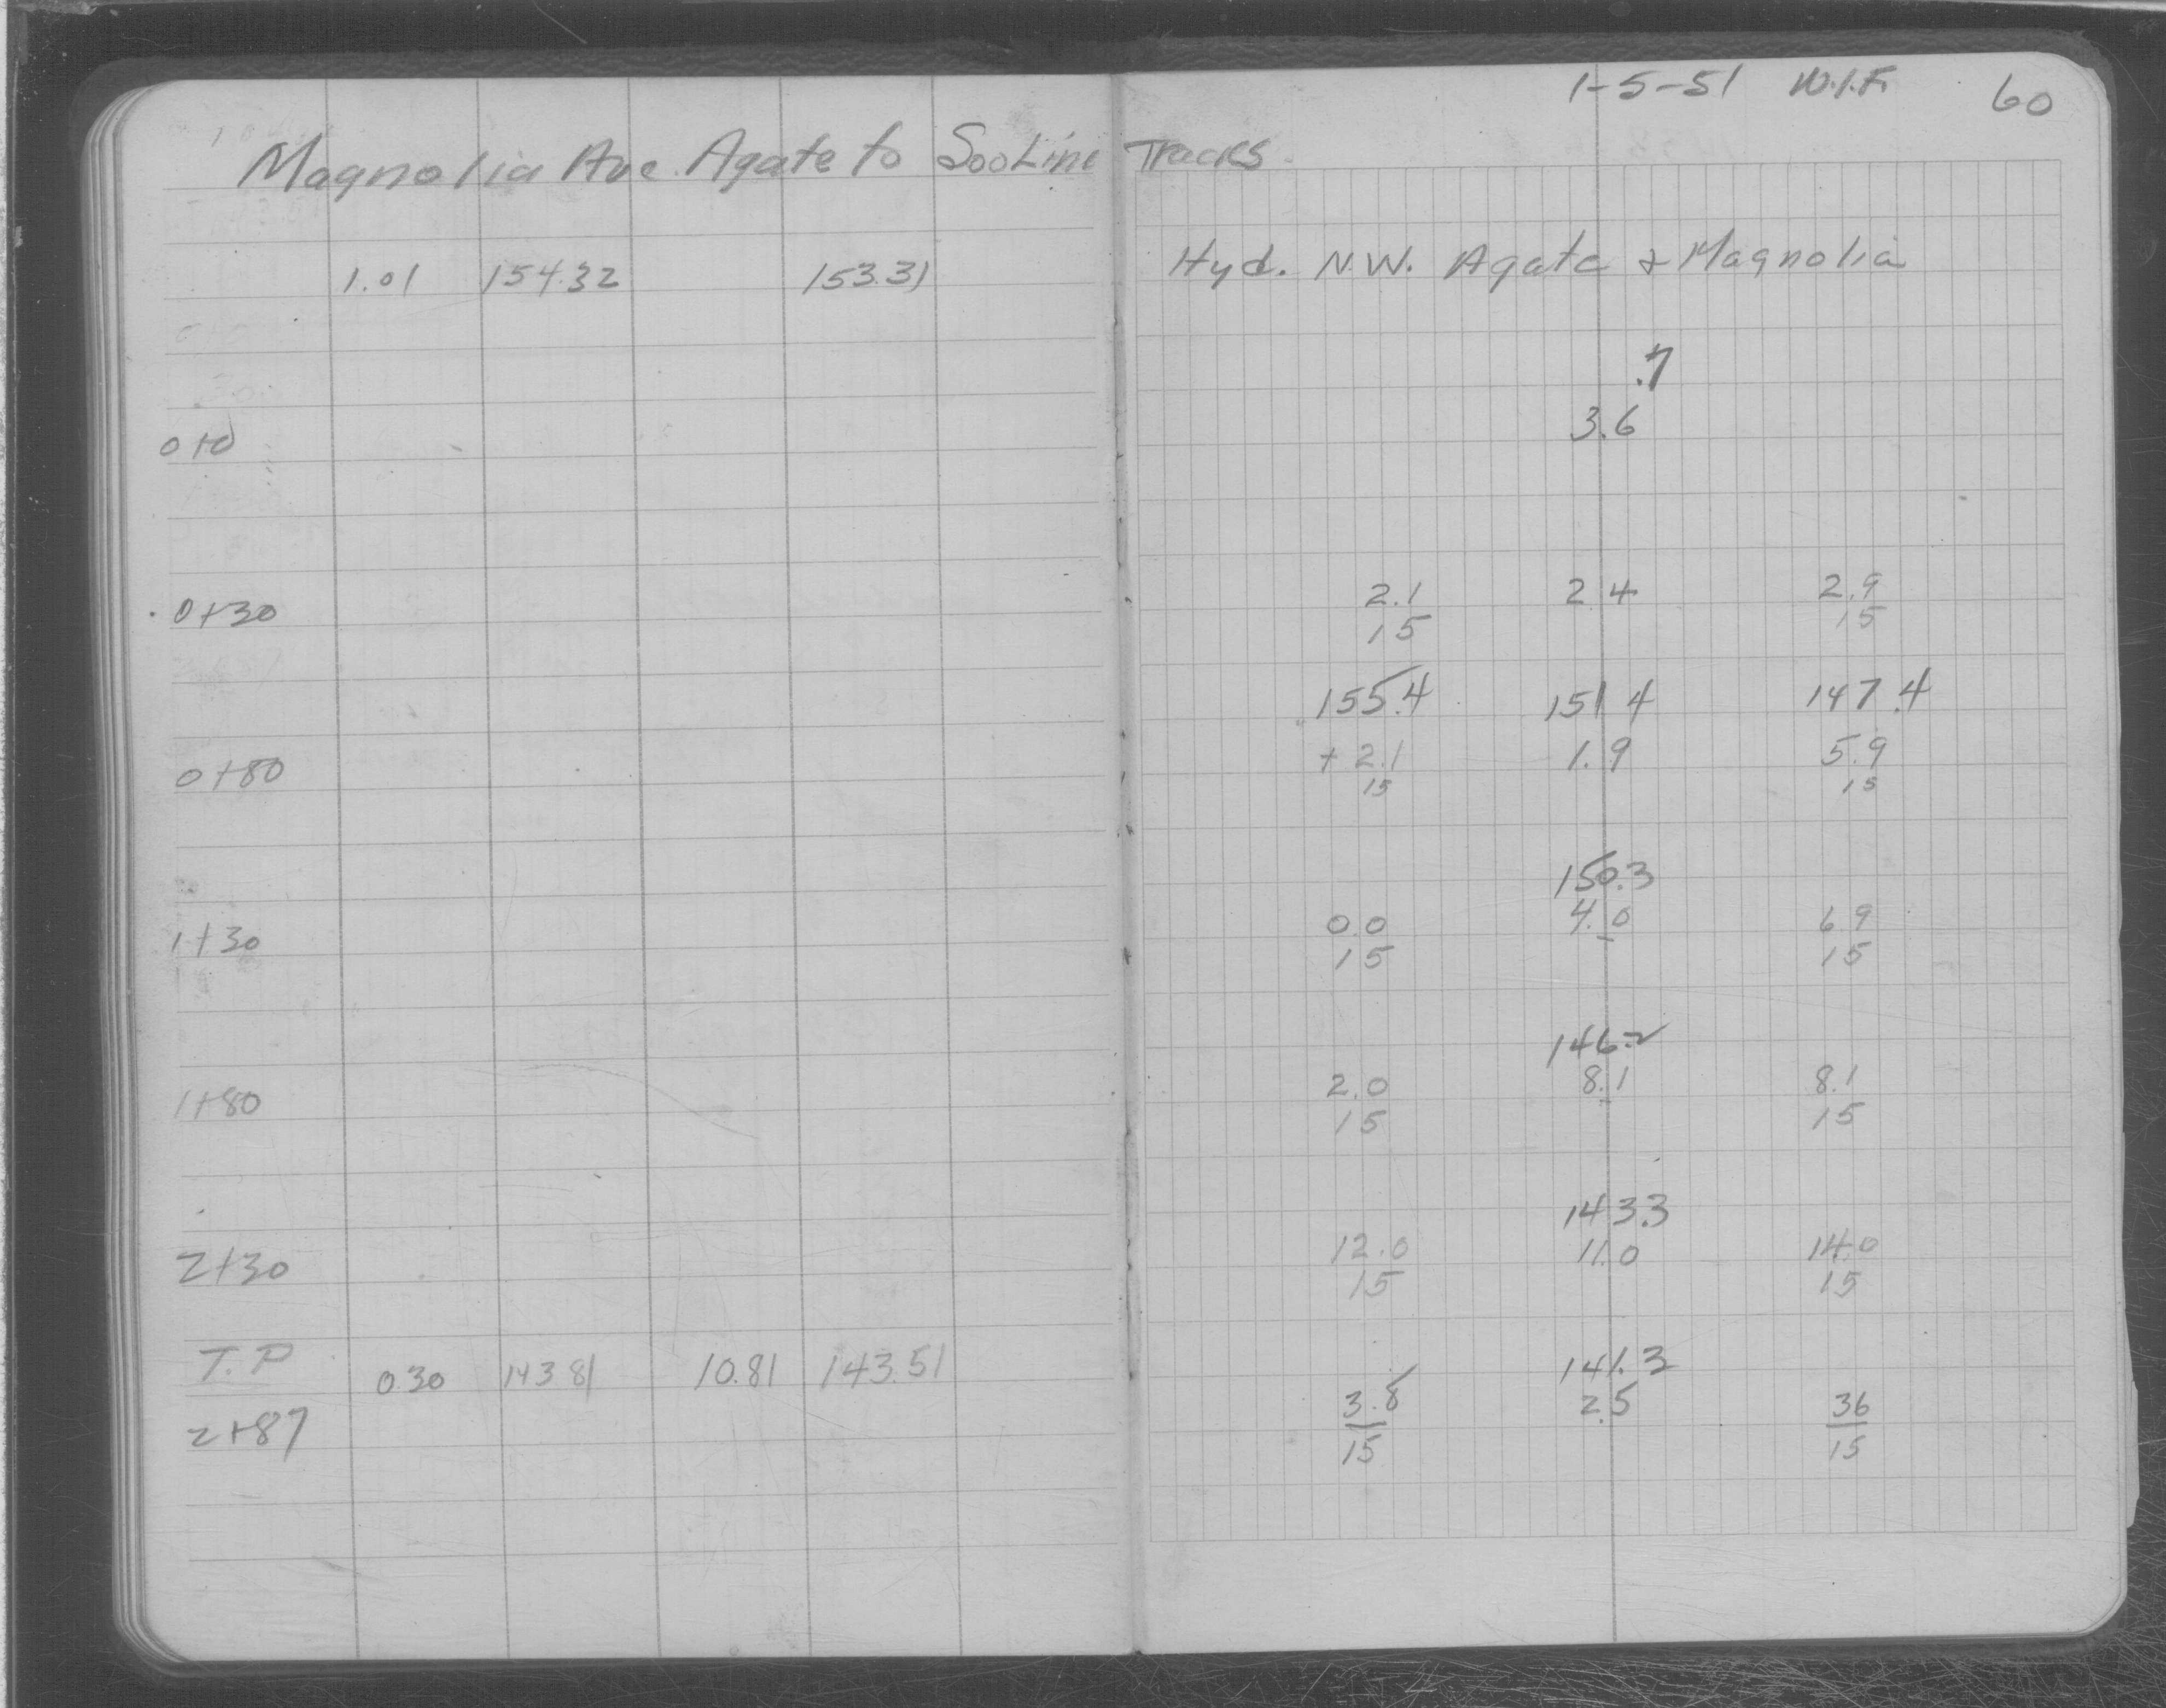 1-5-51 W.I.F. 60
Magnolia Ave. Agate to Soo Line Tracks
1.01 154.32 153.31 Hyd. N.W. Agate & Magnolia
.7
0+0 3.6
0+30 2.1 2.4 2.9
15 15
155.4 151.4 147.4
0+80 + 2.1 1.9 5.9
15 15
150.3
1+30 0.0 4.0 6.9
15 15
146.2
1+80 2.0 8.1 8.1
15 15
143.3
2+30 12.0 11.0 14.0
15 15
T.P 0.30 143.81 10.81 143.51 141.3
2+87 3.8 2.5 36
15 15